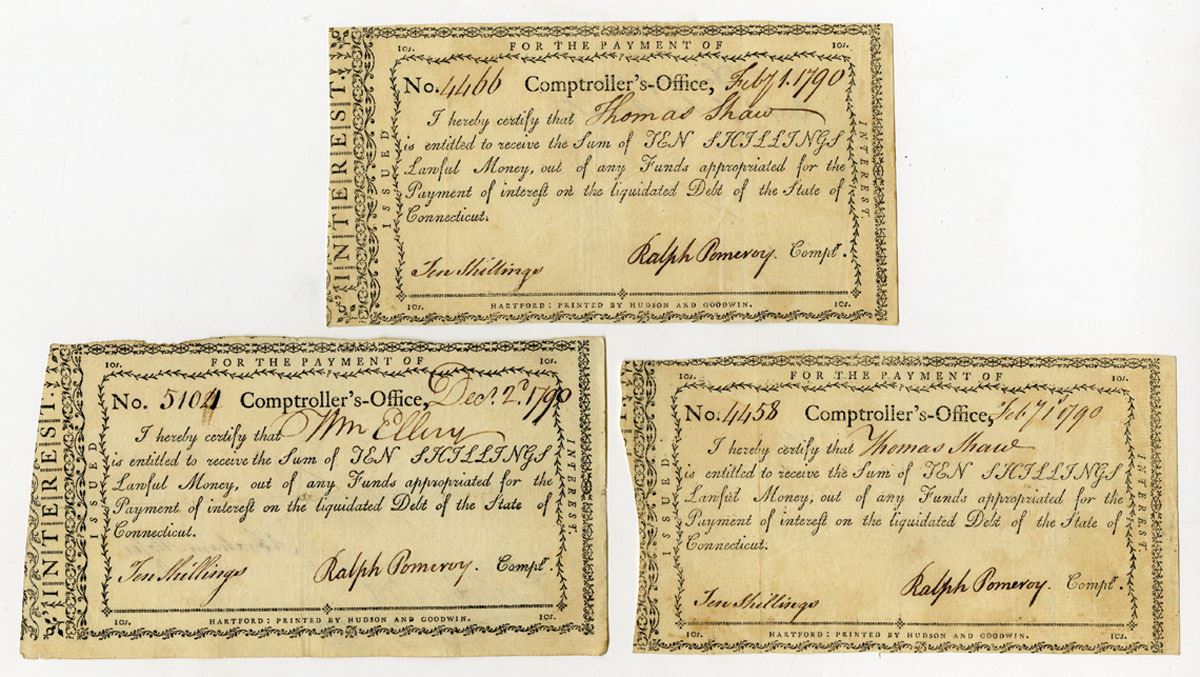 10s. FOR THE PAYMENT OF 10s.
INTEREST.
ISSUED
INTEREST.
No. 4466 Comptroller's-Office, Feby 1. 1790
I hereby certify that Thomas Shaw
is entitled to receive the Sum of TEN SHILLINGS
Lawful Money, out of any Funds appropriated for the
Payment of interest on the liquidated Debt of the State of
Connecticut.
Ralph Pomeroy. Compt.
Ten Shillings
10s. HARTFORD: PRINTED BY HUDSON AND GOODWIN. 10s.
10s. FOR THE PAYMENT OF 10s.
INTEREST.
ISSUED
INTEREST.
No. 5104 Comptroller's-Office, Decr. 2d 1790
I hereby certify that Wm Ellery
is entitled to receive the Sum of TEN SHILLINGS
Lawful Money, out of any Funds appropriated for the
Payment of interest on the liquidated Debt of the State of
Connecticut.
Ten Shillings Ralph Pomeroy. Compt.
10s. HARTFORD: PRINTED BY HUDSON AND GOODWIN. 10s.
FOR THE PAYMENT OF 10s.
ISSUED
INTEREST.
No. 4458 Comptroller's-Office, Feby 1 1790
I hereby certify that Thomas Shaw
is entitled to receive the Sum of TEN SHILLINGS
Lawful Money, out of any Funds appropriated for the
Payment of interest on the liquidated Debt of the State of
Connecticut.
Ralph Pomeroy. Compt.
Ten Shillings
10s. HARTFORD: PRINTED BY HUDSON AND GOODWIN. 10s.